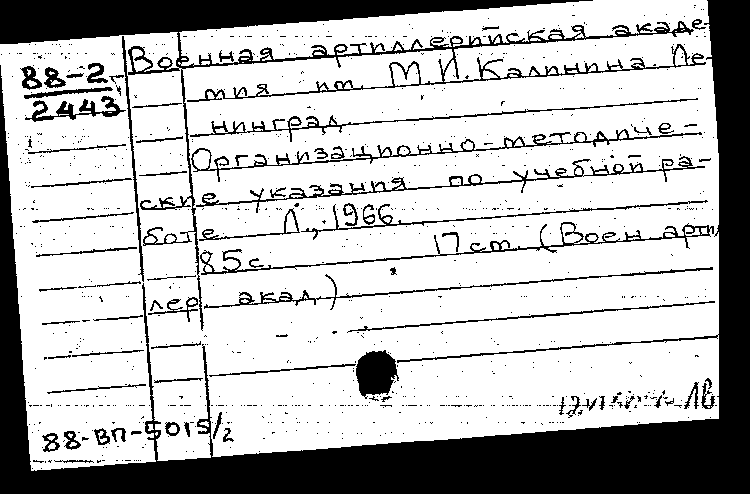 88-2
2443
Военная артиллерийская акаде-
мия им. М.И.Калинина. Ле-
нинград.
Организационно-методиче-
ские указания по учебной ра-
боте. Л., 1966.
85с. 17 см. (Воен артил
лер. акад.)
Лв
88-ВП-5015/2